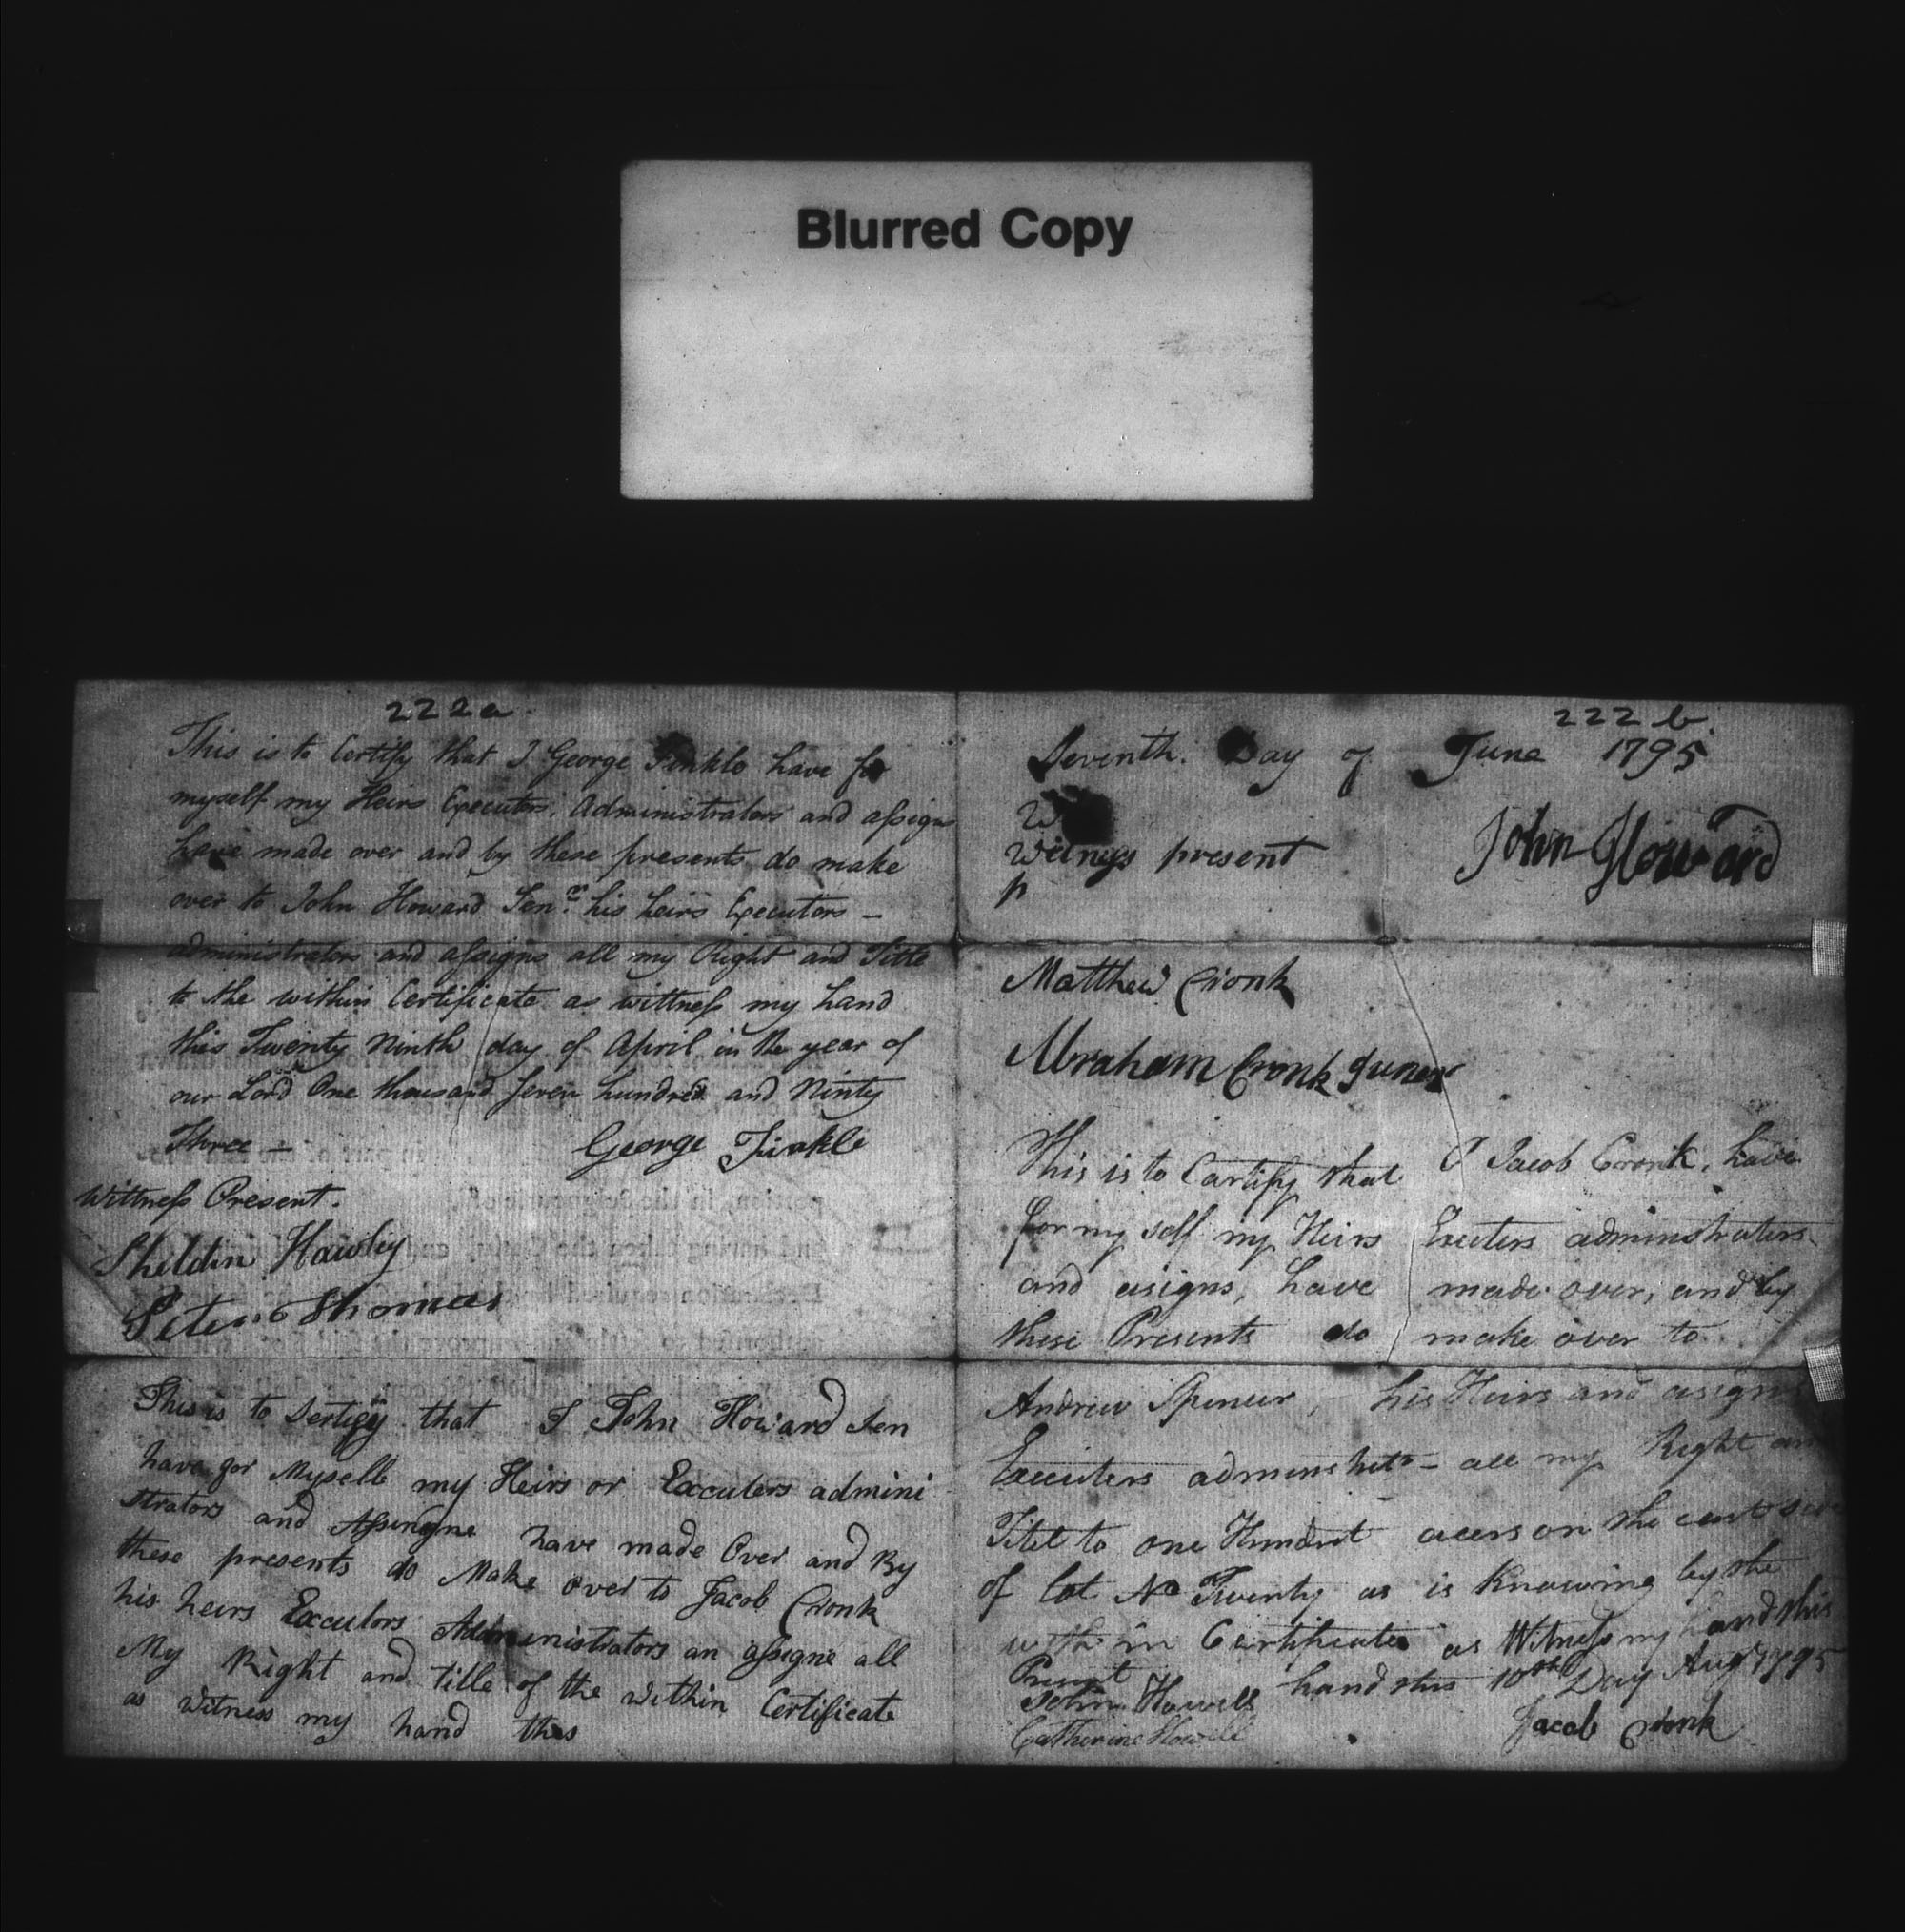 Blurred Copy
222a
This is to Certify that I George Finkle have for
myself my Heirs Executors, Administrators and assigns
have made over and by these presents do make
over to John Howard Senr. his heirs Executors –
administrators and assigns all my Right and Title
to the within Certificate as wittness my hand
this Twenty Ninth day of April in the year of
our Lord One thousand Seven hundred and Ninty
Three – George Finkle
Wittness Present.
Sheldin Hawley
Peter Thomas
This is to Sertify that I John Howard Sen
have for Myself my Heirs or Excuters admini
strators and Assingne have made Over and By
these presents do Make over to Jacob Cronk
his heirs Excutors Administrators an assigne all
My Right and title of the within Certificate
as Witness my hand this
222 b.
Seventh. Day of June 1795
W
Witness present John Howard
p
Matthew Cronk
Abraham Cronk Juner
This is to Cartify that I Jacob Cronk, have
for my self my Heirs Exeuters adminstraters
and asigns, have made over, and by
these Presents do make over to
Andrew Spencer, his Heirs and asigns
Executers all my Right an
Titel to one Hundrit acers on the
of lot No Twenty as is Knowing by the
with in Certificate as Witness my hand this
Present hand this 10th Day Augt 1795
John Howell
Catherine Howell Jacob Cronk